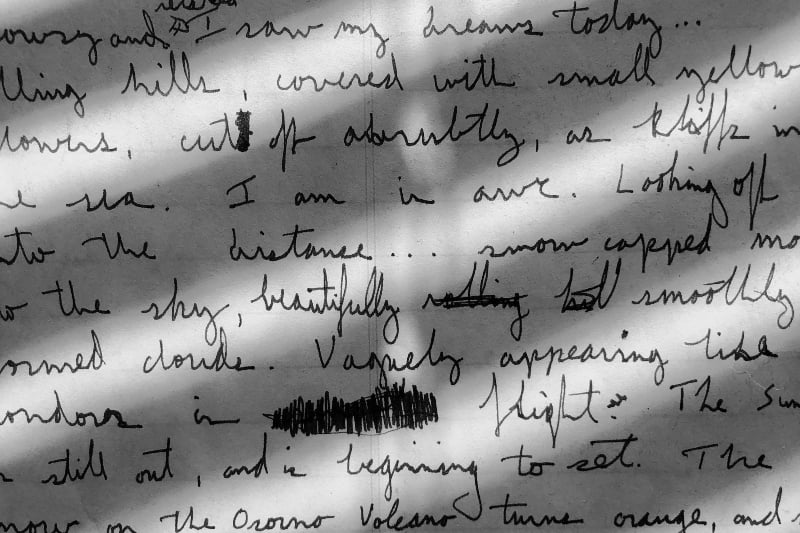 owsy and I saw my dreams today...
lling hills, covered with small yellow
lowers, cut off abrubtly, as kliffs in
he sea. I am in awe. Looking off
nto the distance... snow capped mo
w the sky, beautifully rolling smoothly
ormed clouds. Vaguely appearing like
ondors in flight. The Sun
s still out, and is beginning to set. The
now on the Osorno Volcano turns orange, and